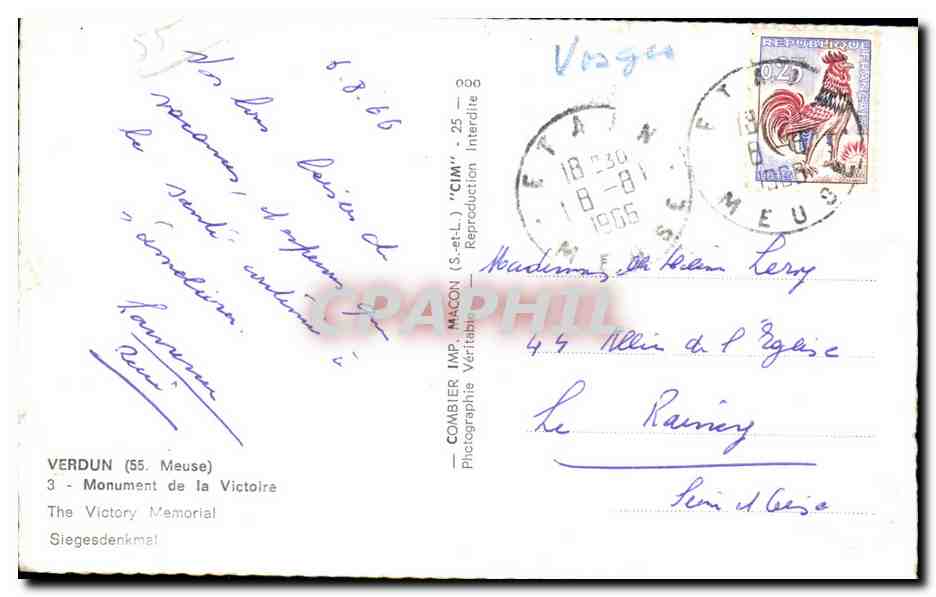 55
6.8.66
Vos bons baisers de
vacances, j'espère que
la santé continue à
s'améliorer.
VERDUN (55. Meuse)
3 - Monument de la Victoire
The Victory Memorial
Siegesdenkmal
— COMBIER IMP. MACON (S.-et-L.) "CIM" - 25 — 000
Photographie Véritable — Reproduction Interdite
Vosges
REPUBLIQUE FRANÇAISE
0,25
ETAIN
18 H30
8 -8
1966
MEUSE
ETAIN
18
8 -8
1966
MEUSE
Leroy
44 Allée de l'Eglise
Le Raincy
Seine et Oise
CPAPHIL